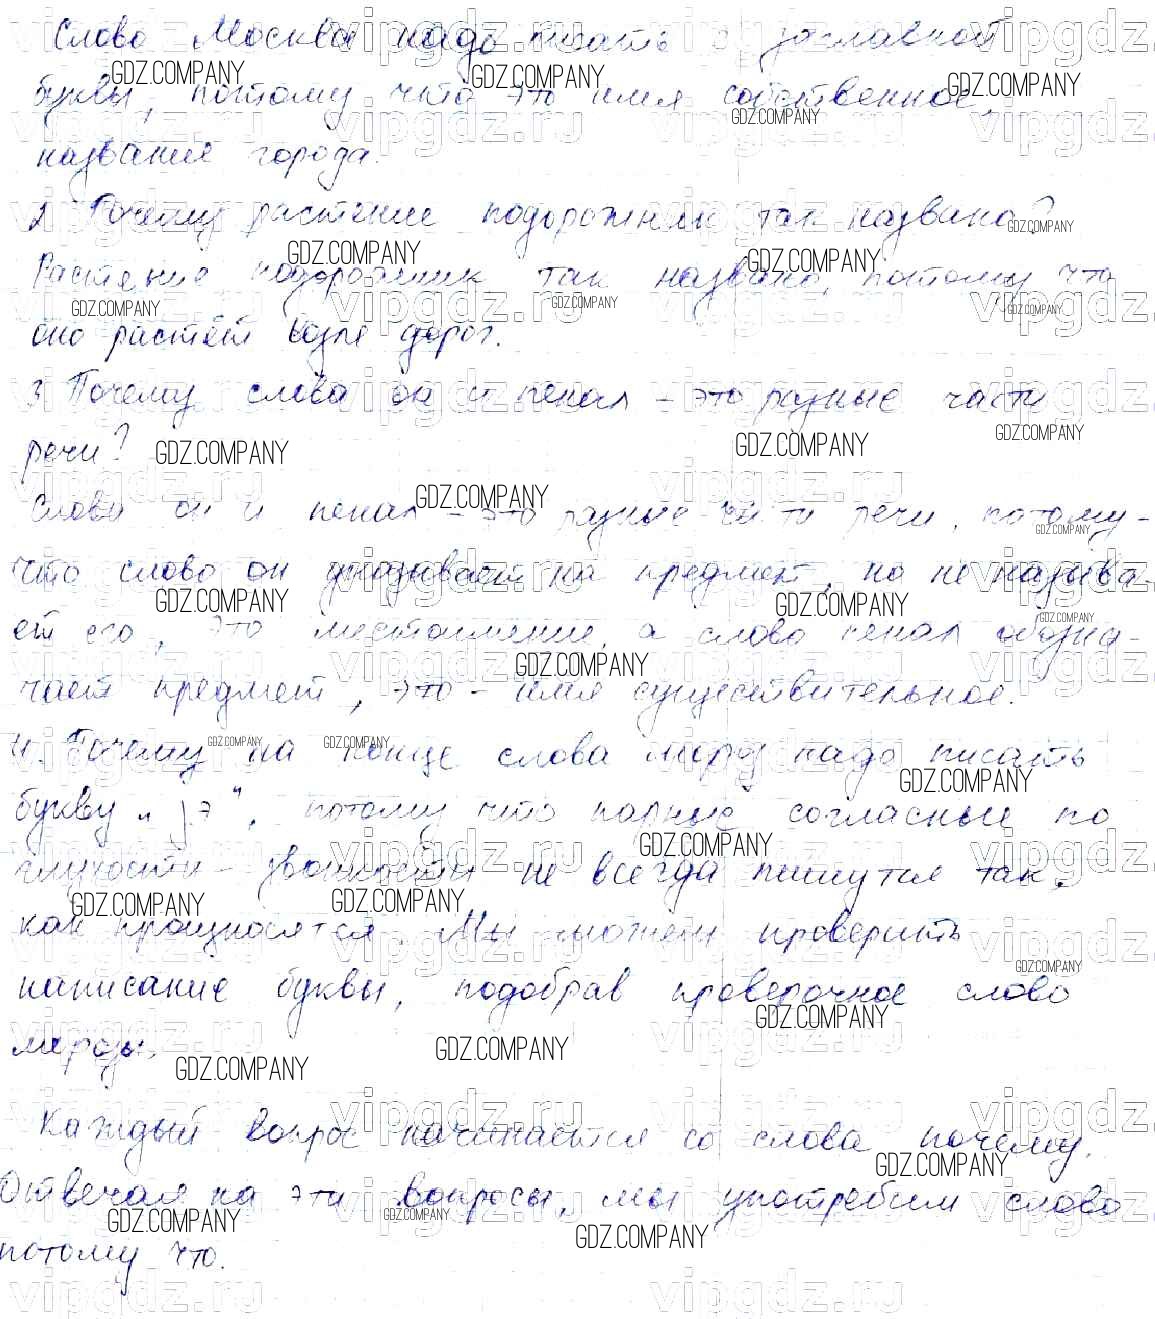 Слово Москва надо писать с заглавной
буквы, потому что это имя собственное,
название города.
2. Почему растение подорожник так названо?
Растение подорожник так названо, потому что
оно растёт возле дорог.
3. Почему слова он и пенал – это разные части
речи?
Слова он и пенал – это разные части речи, потому-
что слово он указывает на предмет, но не называ-
ет его, это местоимение, а слово пенал обозна-
чает предмет, это – имя существительное.
4. Почему на конце слова мороз надо писать
букву „з", потому что парные согласные по
глухости – звонкости не всегда пишутся так,
как произносятся. Мы можем проверить
написание буквы, подобрав проверочное слово
морозы.
Каждый вопрос начинается со слова почему.
Отвечая на эти вопросы, мы употребим слово
потому что.
GDZ.COMPANY
vipgdz.ru